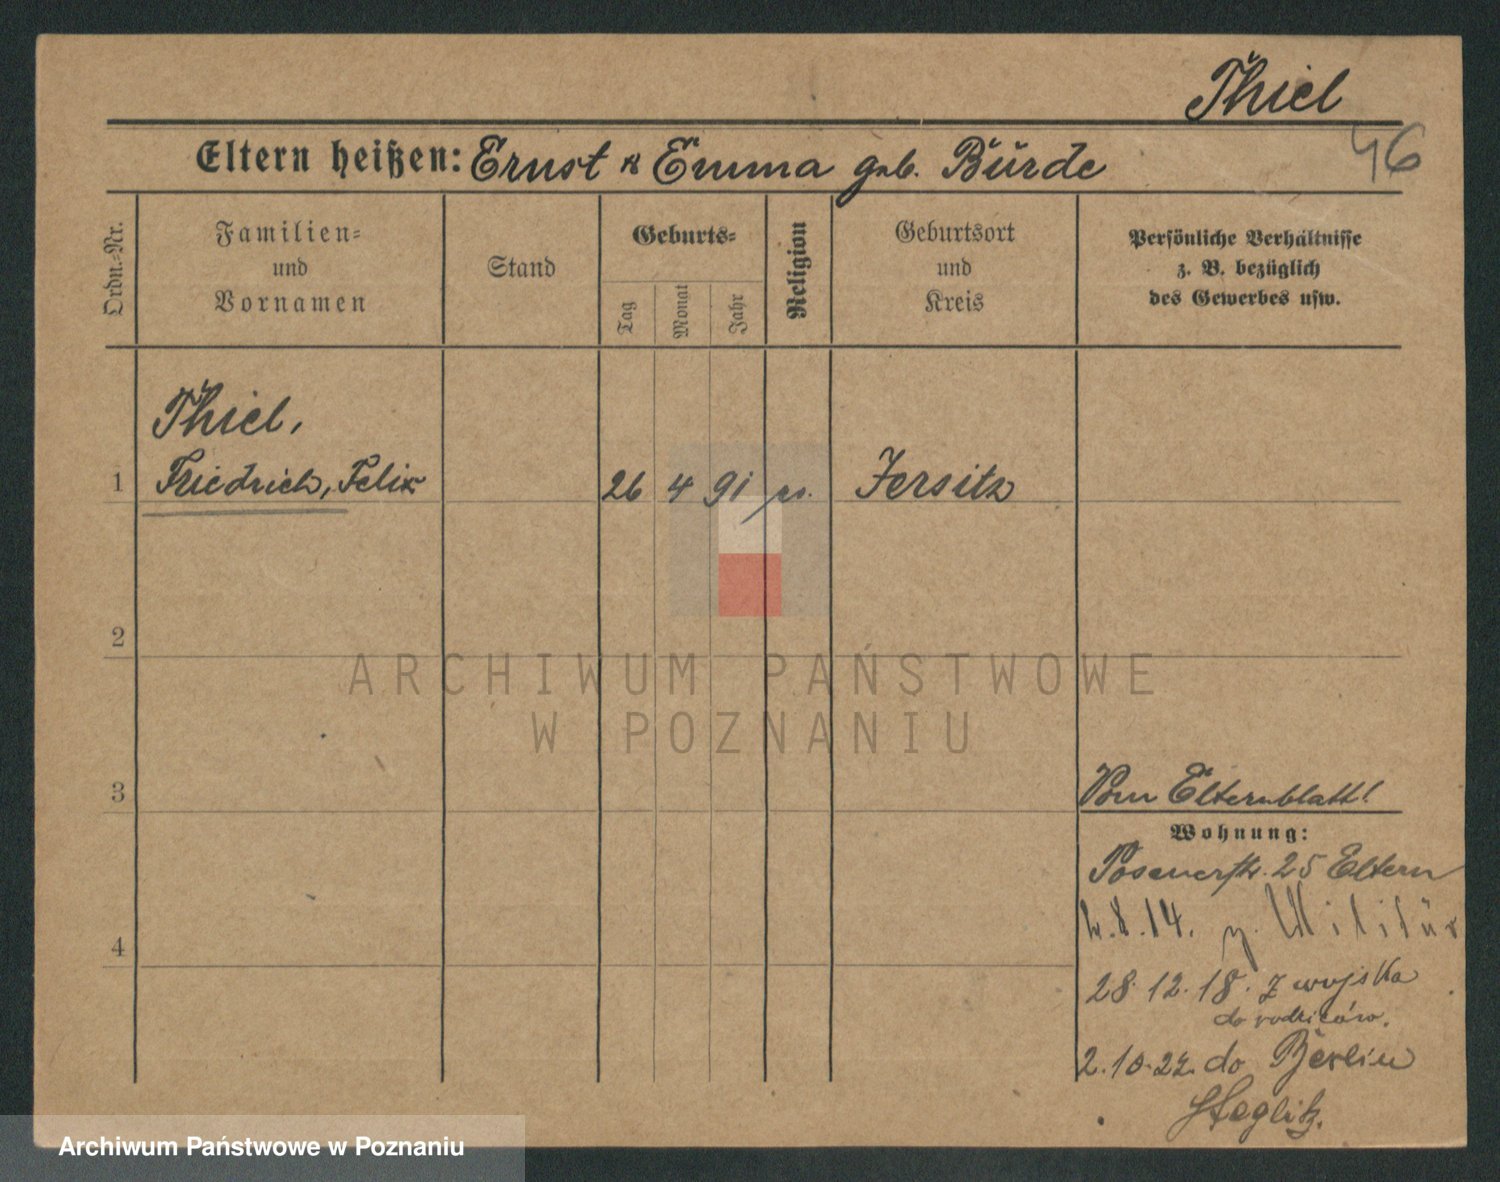 Thiel
46
Eltern heißen: Ernst & Emma geb. Bürde
Ordn.-Nr.
Familien-
und
Vornamen
Stand
Geburts-
Tag
Monat
Jahr
Religion
Geburtsort
und
Kreis
Persönliche Verhältnisse
z. B. bezüglich
des Gewerbes usw.
Thiel,
1 Friedrich, Felix 26 4 91 Jersitz
2
ARCHIWUM PAŃSTWOWE
W POZNANIU
3
Vom Elternblatt!
Wohnung:
Posenerstr. 25 Eltern
4
2.8.14. z. Militär
28.12.18. z wojska
do rodziców.
2.10.22. do Berlin
Steglitz.
Archiwum Państwowe w Poznaniu